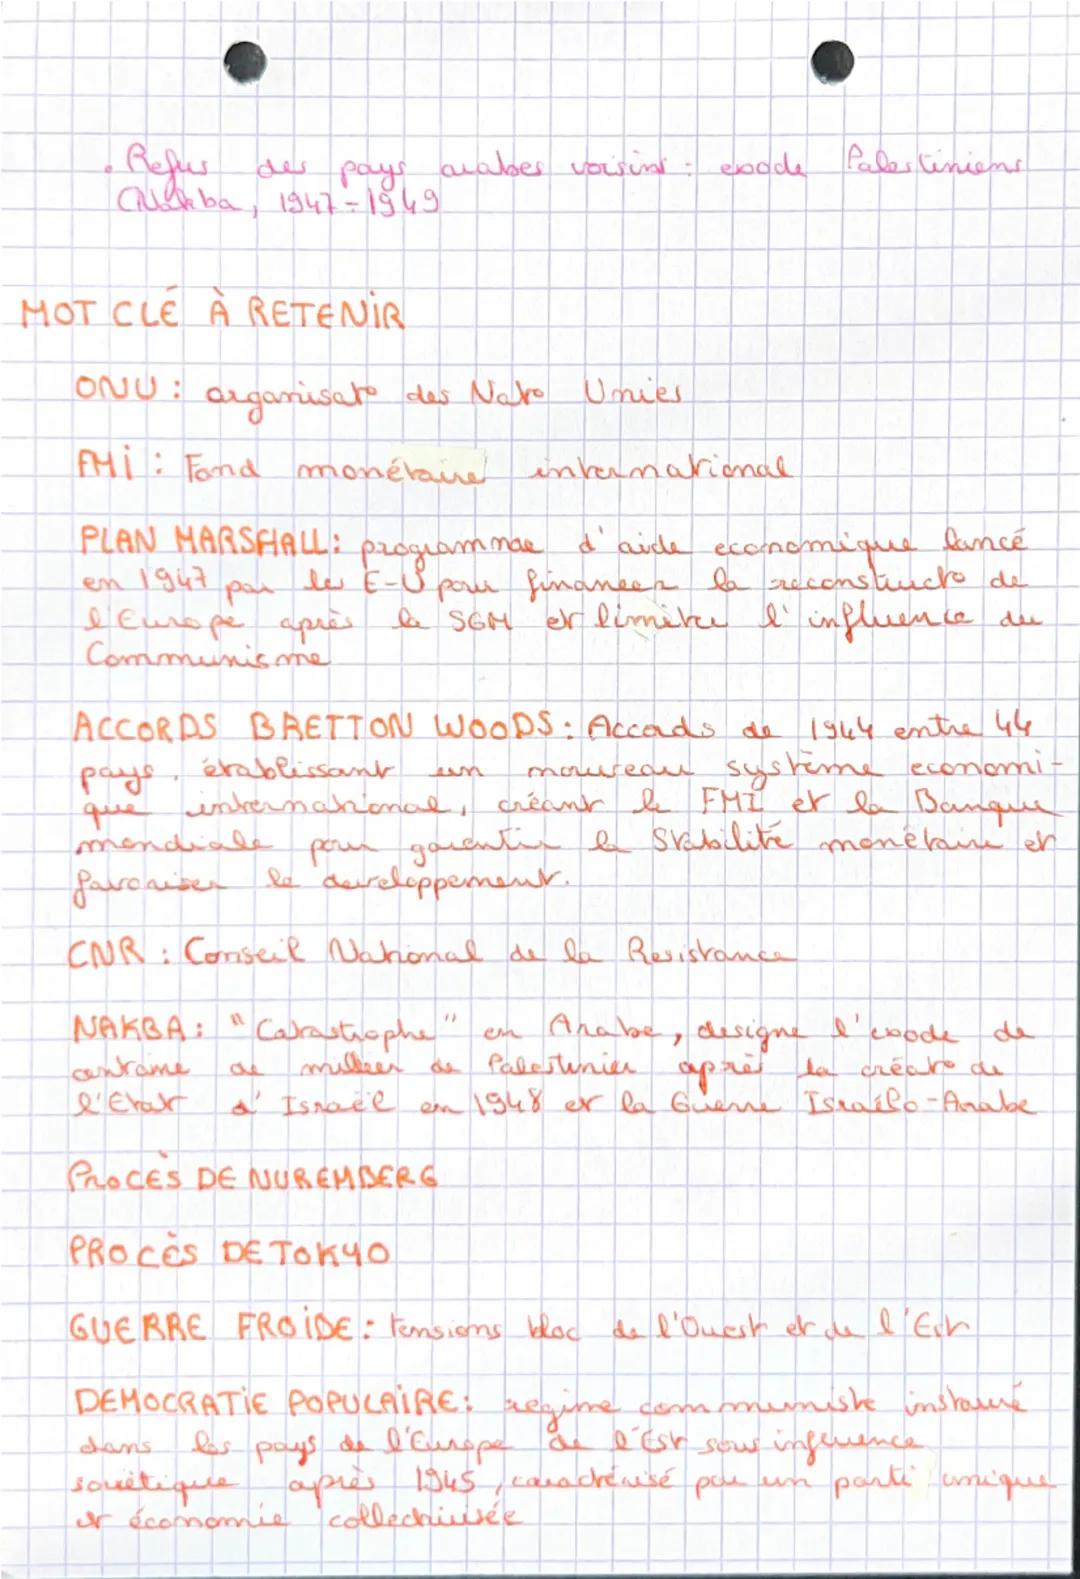 • Refus des pays arabes voisins : exode Palestiniens
(Nakba, 1947-1949
MOT CLÉ À RETENIR
ONU : organisato des Nato Unies
FMI : Fond monétaire international
PLAN MARSHALL : programmae d'aide economique lancé
en 1947 par les E-U pour financer la reconstructo de
l'Europe après la SGM et limiter l'influence du
Communisme
ACCORDS BRETTON WOODS : Accords de 1944 entre 44
pays, établissant un nouveau système economi-
que international, créant le FMI et la Banque
mondiale pour garentir la Stabilité monétaire et
favoriser le developpement.
CNR : Conseil National de la Resistance
NAKBA : "Catastrophe" en Arabe, designe l'exode de
centaine de millier de Palestinien après la créato de
l'Etat d'Israël en 1948 et la Guerre Israélo-Arabe
PROCÈS DE NUREMBERG
PROCÈS DE TOKYO
GUERRE FROIDE : tensions bloc de l'Ouest et de l'Est
DEMOCRATIE POPULAIRE : regime communiste instauré
dans les pays de l'Europe de l'Est sous influence
soviétique après 1945, caractérisé par un parti unique
et économie collectivisée